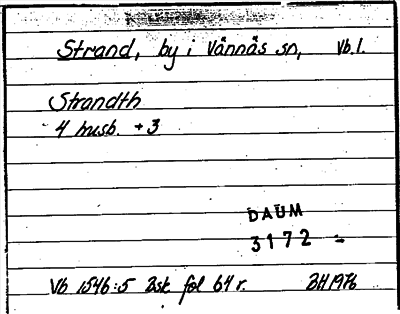 Strand, by i Vännäs sn, Vb. l.
Strandth
4 husb. + 3
DAUM
3172 -
Vb 1546:5 Bsk fol 64 r. BH 1976